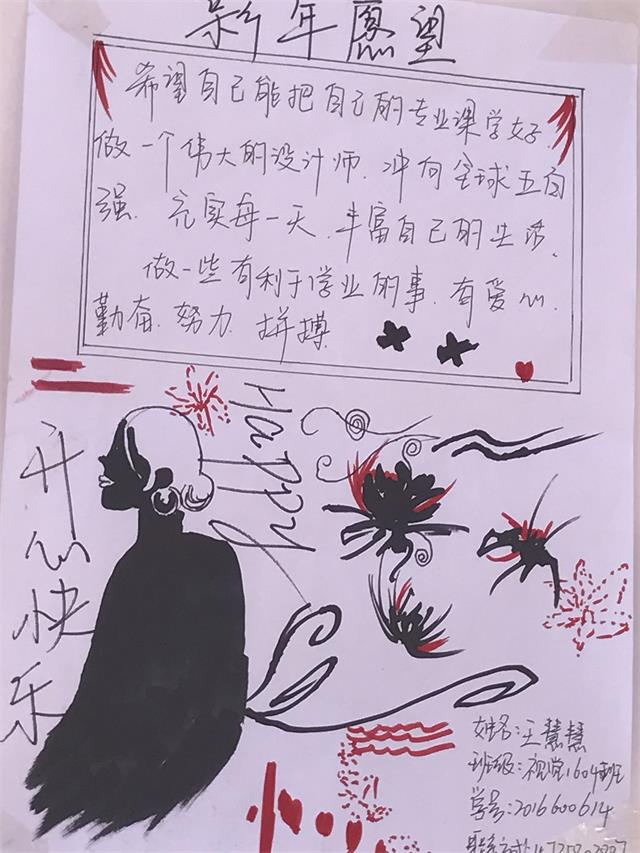 新年愿望
希望自己能把自己的专业课学好.
做一个伟大的设计师.冲向全球五百
强.充实每一天.丰富自己的生活.
做一些有利于学业的事.有爱心.
勤奋.努力.拼搏
Happy
开心快乐
姓名:王慧慧
班级:视觉1604班
学号:2016600614